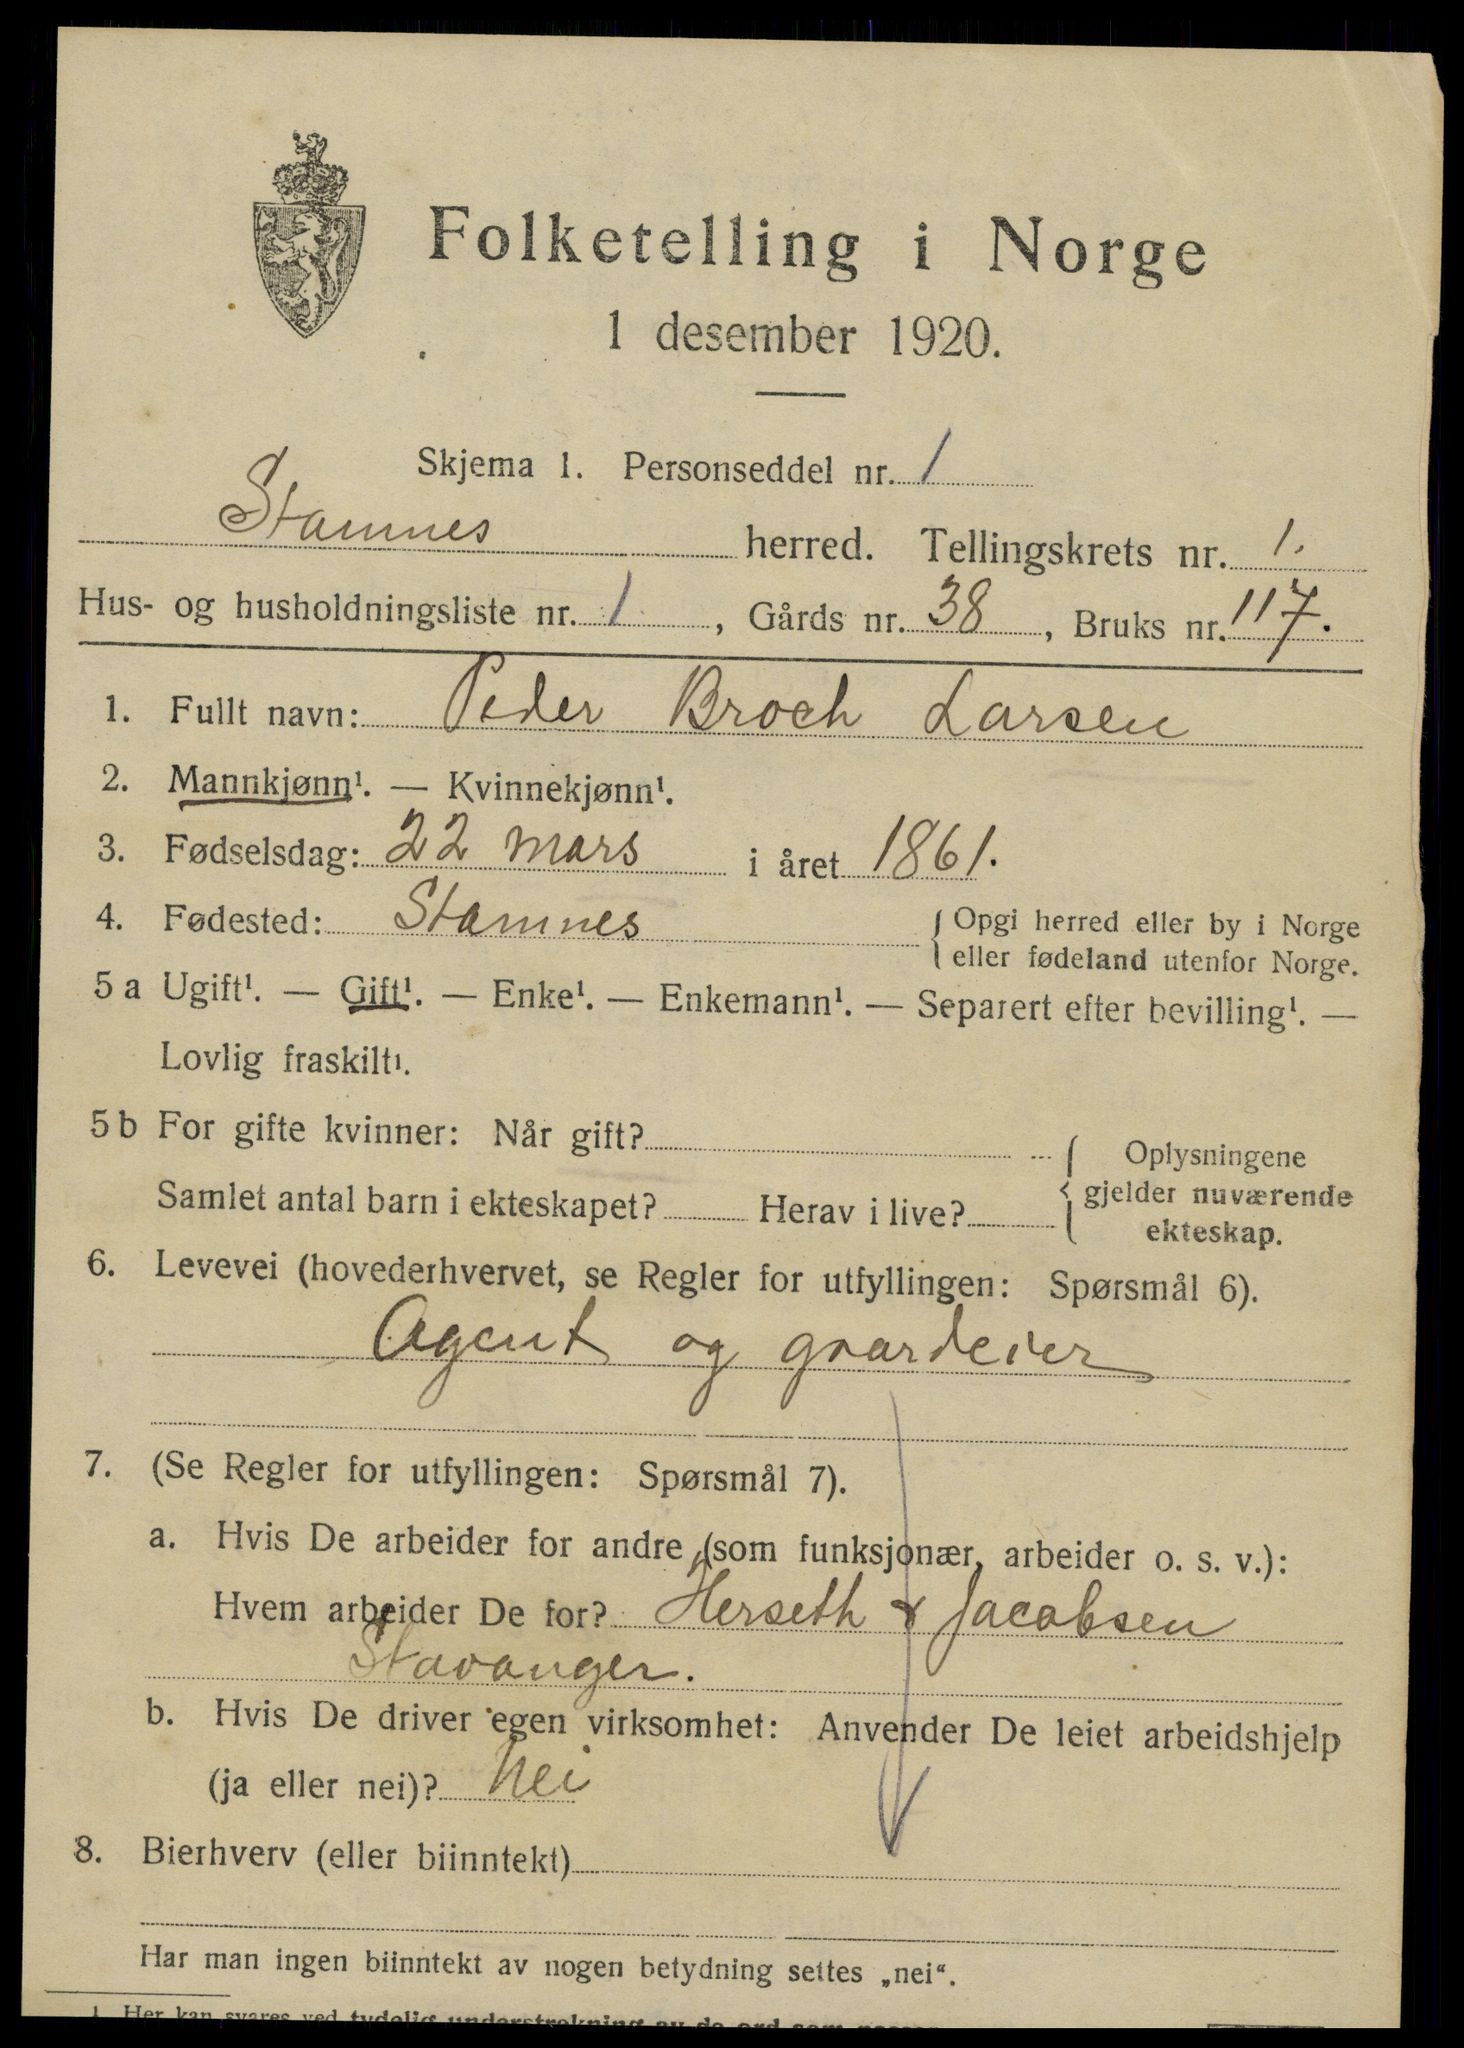 Folketelling i Norge
1 desember 1920.
Skjema 1. Personseddel nr. 1
Stamnes herred. Tellingskrets nr. 1.
Hus- og husholdningsliste nr. 1, Gårds nr. 38, Bruks nr. 117.
1. Fullt navn: Peder Broch Larsen
2. Mannkjønn¹. — Kvinnekjønn¹.
3. Fødselsdag: 22 mars i året 1861.
4. Fødested: Stamnes { Opgi herred eller by i Norge
eller fødeland utenfor Norge.
5 a Ugift¹. — Gift¹. — Enke¹. — Enkemann¹. — Separert efter bevilling¹. —
Lovlig fraskilt¹.
5 b For gifte kvinner: Når gift? { Oplysningene
Samlet antal barn i ekteskapet? Herav i live? gjelder nuværende
ekteskap.
6. Levevei (hovederhvervet, se Regler for utfyllingen: Spørsmål 6).
Agent og gaardeier
7. (Se Regler for utfyllingen: Spørsmål 7).
a. Hvis De arbeider for andre (som funksjonær, arbeider o. s. v.):
Hvem arbeider De for? Herseth & Jacobsen
Stavanger.
b. Hvis De driver egen virksomhet: Anvender De leiet arbeidshjelp
(ja eller nei)? Nei
8. Bierhverv (eller biinntekt)
Har man ingen biinntekt av nogen betydning settes „nei“.
1 Her kan svares ved tydelig understrekning av de ord som